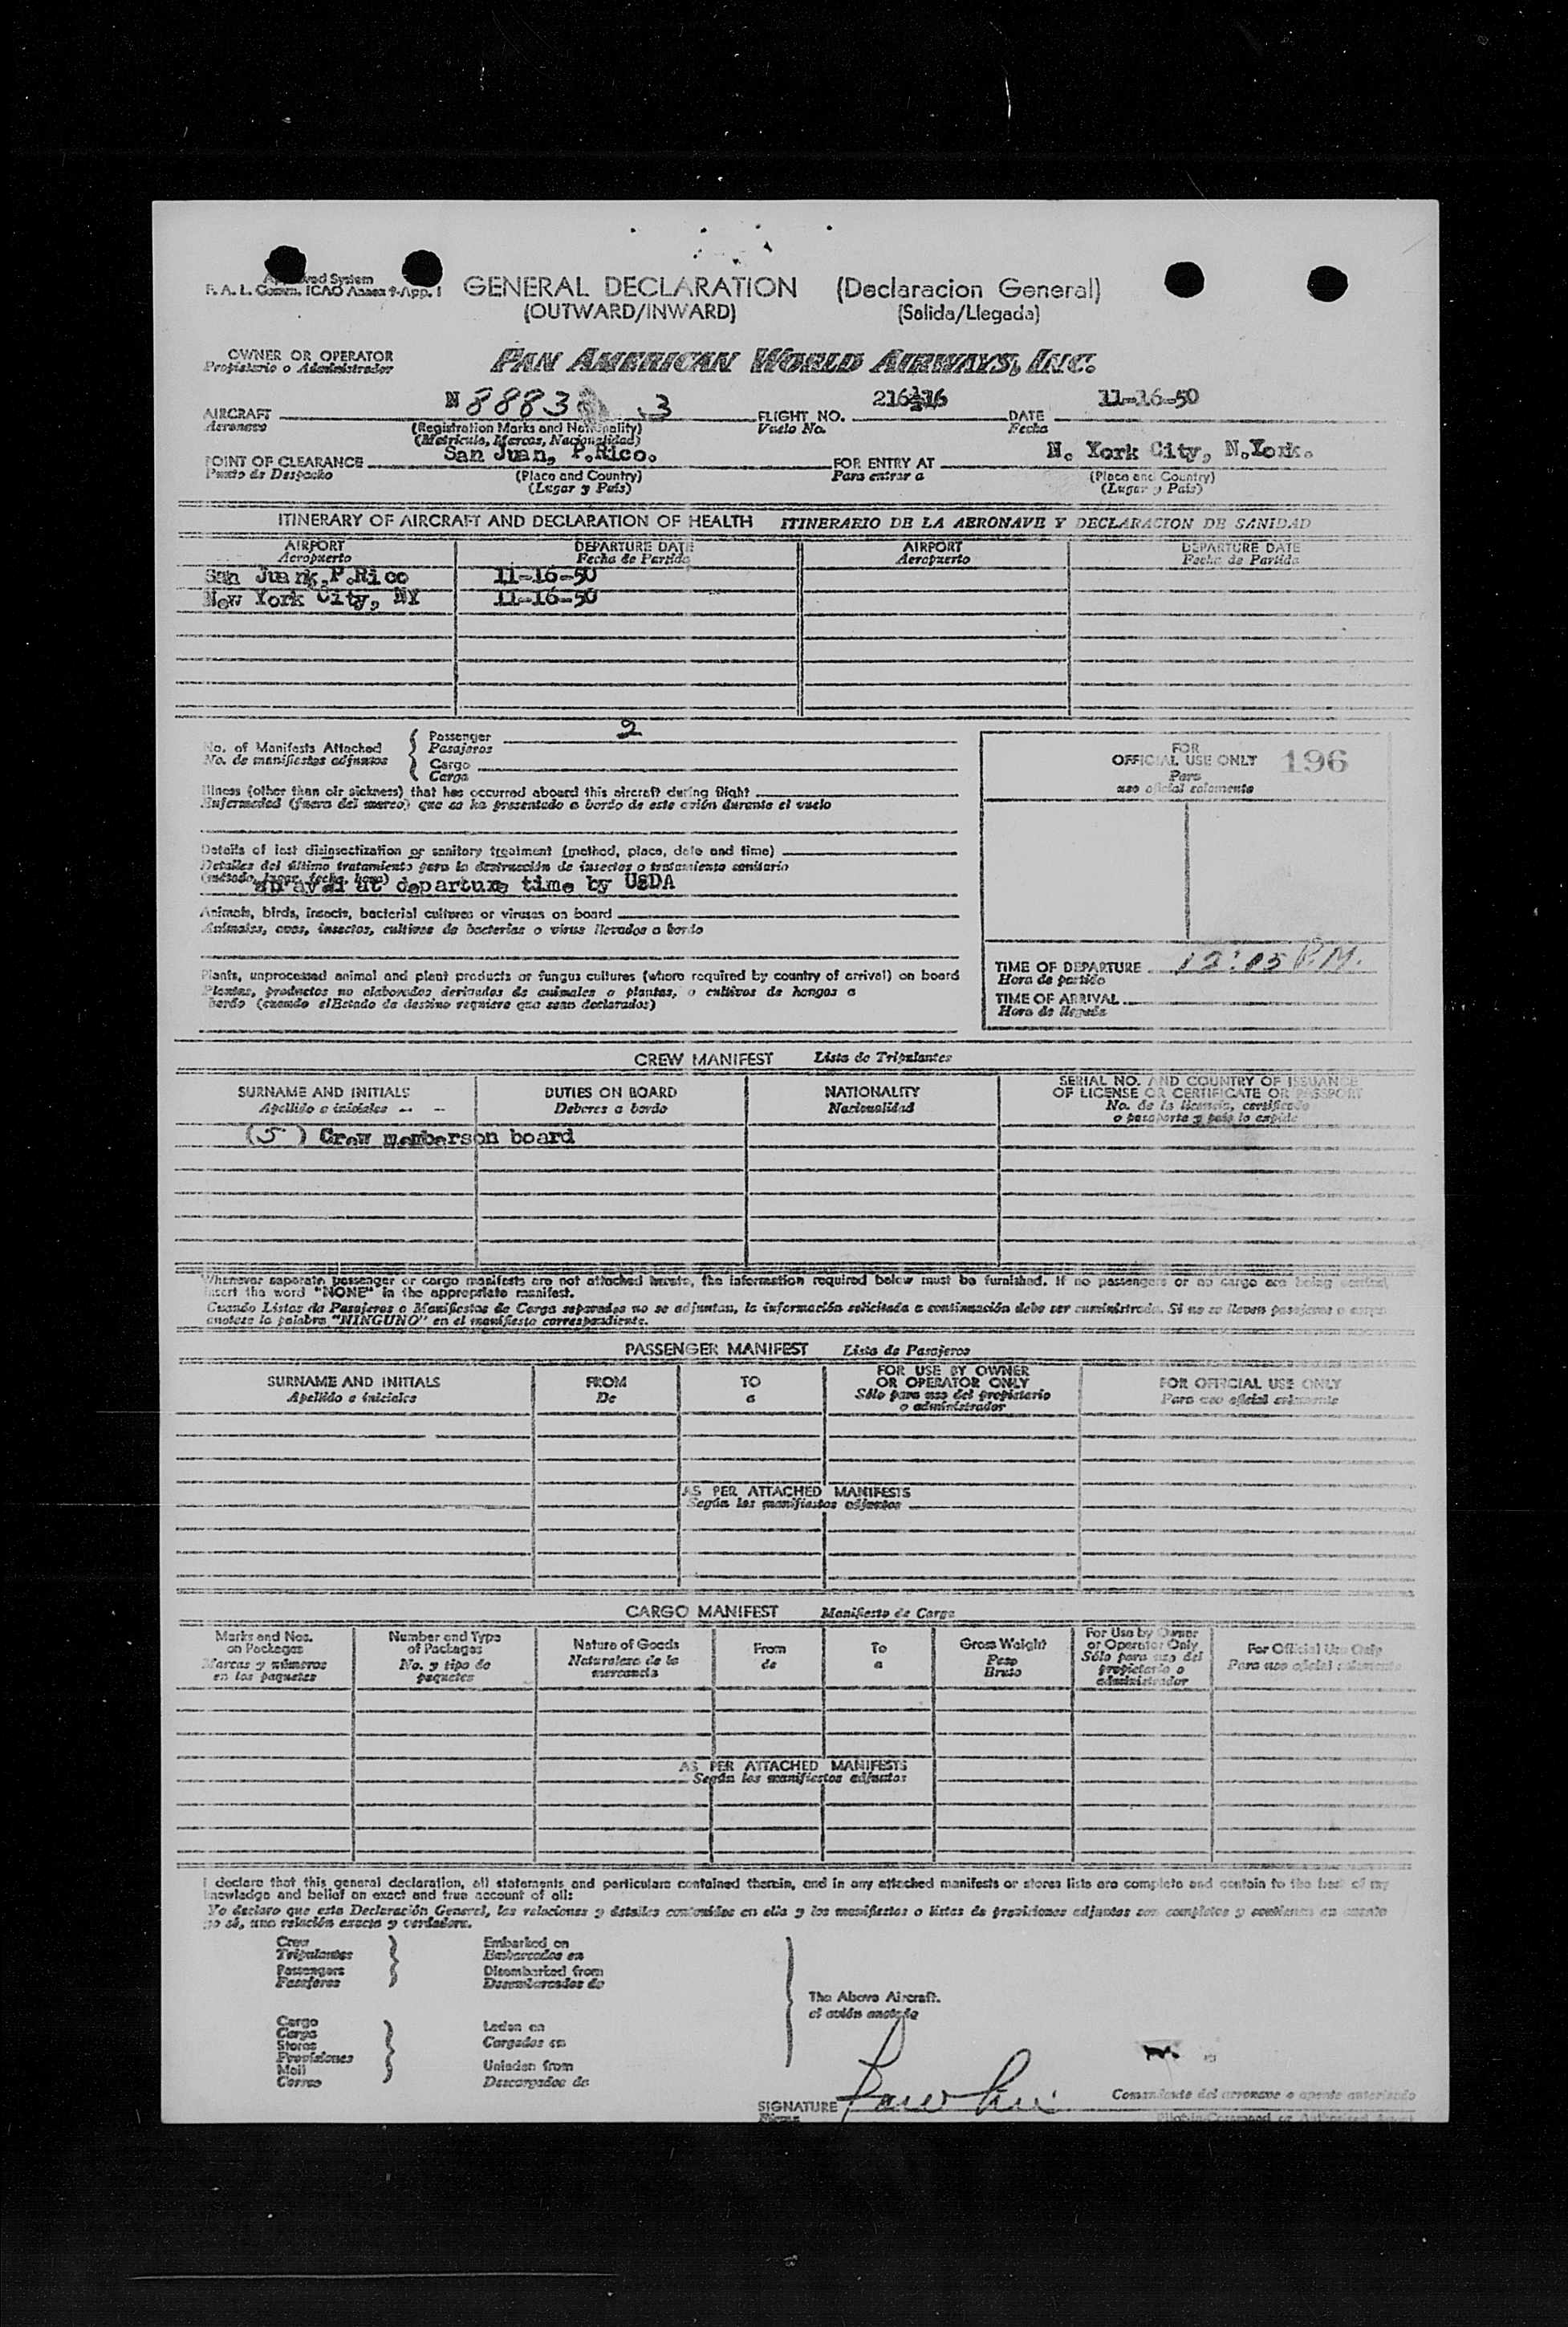 Approved System
F. A. L. Comm. ICAO Annex 9-App. 1
GENERAL DECLARATION (Declaracion General)
(OUTWARD/INWARD) (Salida/Llegada)
OWNER OR OPERATOR
Propietario o Administrador
PAN AMERICAN WORLD AIRWAYS, INC.
AIRCRAFT N 8883 3 FLIGHT NO. 216 DATE 11-16-50
Aeronave (Registration Marks and Nationality) Vuelo No. Fecha
(Matricula, Marcas, Nacionalidad)
POINT OF CLEARANCE San Juan, P.Rico. FOR ENTRY AT N. York City, N.York.
Punto de Despacho (Place and Country) Para entrar a (Place and Country)
(Lugar y Pais) (Lugar y Pais)
ITINERARY OF AIRCRAFT AND DECLARATION OF HEALTH ITINERARIO DE LA AERONAVE Y DECLARACION DE SANIDAD
AIRPORT DEPARTURE DATE AIRPORT DEPARTURE DATE
Aeropuerto Fecha de Partida Aeropuerto Fecha de Partida
San Juan, P.Rico 11-16-50
New York City, NY 11-16-50
No. of Manifests Attached Passenger 2
No. de manifiestos adjuntos Pasajeros
Cargo
Carga
FOR
OFFICIAL USE ONLY 196
Para
uso oficial solamente
Illness (other than air sickness) that has occurred aboard this aircraft during flight
Enfermedad (fuera del mareo) que se ha presentado a bordo de este avión durante el vuelo
Details of last disinsectization or sanitary treatment (method, place, date and time)
Detalles del último tratamiento para la destrucción de insectos o tratamiento sanitario
(método, lugar, fecha, hora)
at departure time by USDA
Animals, birds, insects, bacterial cultures or viruses on board
Animales, aves, insectos, cultivos de bacterias o virus llevados a bordo
Plants, unprocessed animal and plant products or fungus cultures (where required by country of arrival) on board
Plantas, productos no elaborados derivados de animales o plantas, o cultivos de hongos a
bordo (cuando el Estado de destino requiere que sean declarados)
TIME OF DEPARTURE 12:05 P.M.
Hora de partida
TIME OF ARRIVAL
Hora de llegada
CREW MANIFEST Lista de Tripulantes
SURNAME AND INITIALS DUTIES ON BOARD NATIONALITY SERIAL NO. AND COUNTRY OF ISSUANCE
OF LICENSE OR CERTIFICATE OR PASSPORT
Apellido e iniciales Deberes a bordo Nacionalidad No. de la licencia, certificado
o pasaporte y pais lo expide
(5) Crew members on board
Whenever separate passenger or cargo manifests are not attached hereto, the information required below must be furnished. If no passengers or no cargo are being carried,
insert the word "NONE" in the appropriate manifest.
Cuando Listas de Pasajeros o Manifiestos de Carga separados no se adjuntan, la información solicitada a continuación debe ser suministrada. Si no se llevan pasajeros o carga
anotese la palabra "NINGUNO" en el manifiesto correspondiente.
PASSENGER MANIFEST Lista de Pasajeros
SURNAME AND INITIALS FROM TO FOR USE BY OWNER
OR OPERATOR ONLY FOR OFFICIAL USE ONLY
Apellido e iniciales De a Sólo para uso del propietario
o administrador Para uso oficial solamente
AS PER ATTACHED MANIFESTS
Según los manifiestos adjuntos
CARGO MANIFEST Manifiesto de Carga
Marks and Nos.
on Packages
Marcas y números
en los paquetes
Number and Type
of Packages
No. y tipo de
paquetes
Nature of Goods
Naturaleza de la
mercancia
From
de
To
a
Gross Weight
Peso
Bruto
For Use by Owner
or Operator Only
Sólo para uso del
propietario o
administrador
For Official Use Only
Para uso oficial solamente
AS PER ATTACHED MANIFESTS
Según los manifiestos adjuntos
I declare that this general declaration, all statements and particulars contained therein, and in any attached manifests or stores lists are complete and contain to the best of my
knowledge and belief an exact and true account of all:
Yo declaro que esta Declaración General, las relaciones y detalles contenidos en ella y los manifiestos o listas de provisiones adjuntos son completos y contienen en cuanto
yo sé, una relación exacta y verdadera.
Crew
Tripulantes
Passengers
Pasajeros
Embarked on
Embarcados en
Disembarked from
Desembarcados de
The Above Aircraft.
el avión anotado
Cargo
Carga
Stores
Provisiones
Mail
Correo
Laden on
Cargados en
Unladen from
Descargados de
SIGNATURE
Firma
Comandante del aeronave o agente autorizado
Pilot-in-Command or Authorized Agent